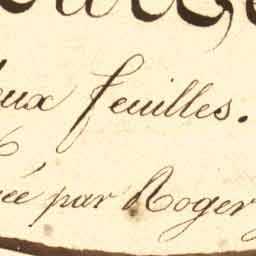 eux feuilles.
ée par Roger